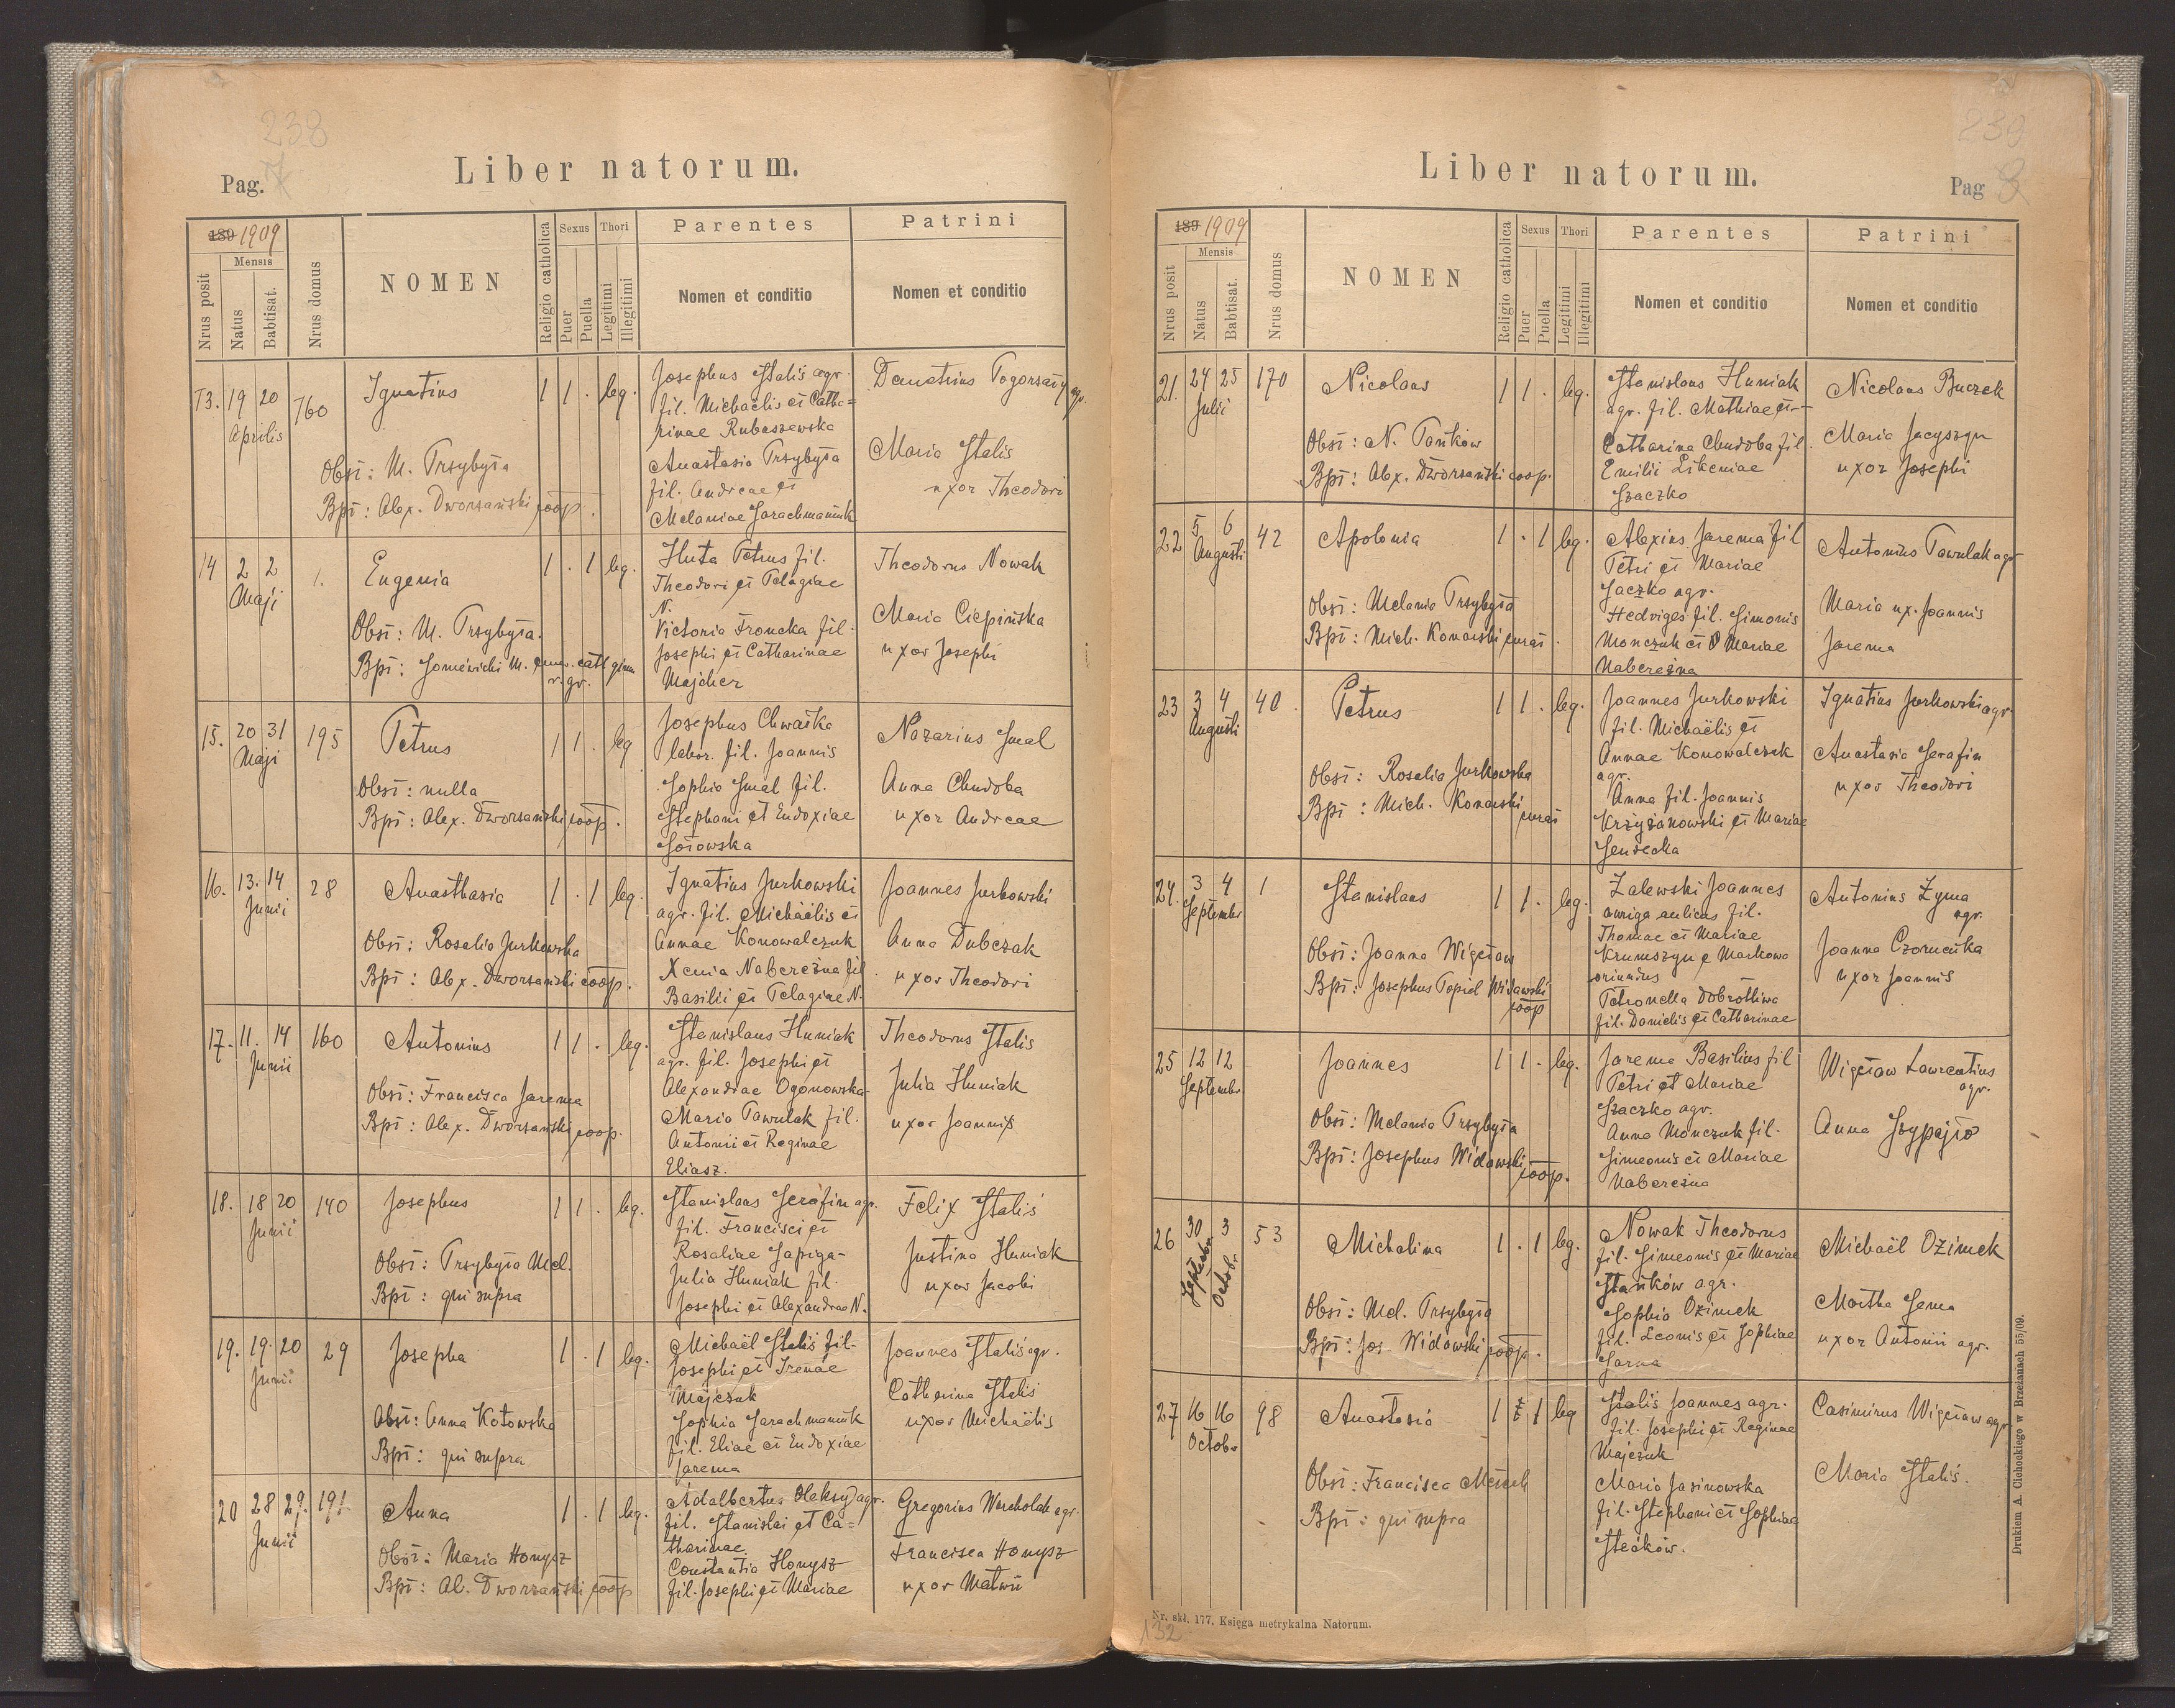 238
Pag. 7
Liber natorum.
189 1909
Nrus posit
Mensis
Natus
Babtisat.
Nrus domus
NOMEN
Religio catholica
Sexus
Puer
Puella
Thori
Legitimi
Illegitimi
Parentes
Nomen et conditio
Patrini
Nomen et conditio
13. 19 20 Aprilis 160
Ignatius
1 1 . leg.
Josephus Stalis agr.
fil. Michaëlis et Catha=
rinae Rubaszewska
Anastasia Przybyła
fil. Andreae et
Melaniae Sarachmaniuk
Demetrius Pogorzały agr.
Maria Stalis
uxor Theodori
Obst: M. Przybyła
Bpt: Alex. Dworzański coop.
14 2 2 Maji 1.
Eugenia
1 . 1 leg.
Huta Petrus fil.
Theodori et Pelagiae
N.
Victoria Froncka fil.
Josephi et Catharinae
Majcher
Theodorus Nowak
Maria Ciepińska
uxor Josephi
Obst: M. Przybyła.
Bpt: M.
r. gr.
15. 20 31 Maji 195
Petrus
1 1 . leg
Josephus Chwastka
labor. fil. Joannis
Sophia Smal fil.
Stephani et Eudoxiae
Nazarius Smal
Anna Chudoba
uxor Andreae
Obst: nulla
Bpt: Alex. Dworzański coop.
16. 13. 14 Junii 28
Anasthasia
1 . 1 leg.
Ignatius Jurkowski
agr. fil. Michaëlis et
Annae Konowalczuk
Xenia Nabereżna fil
Basilii et Pelagiae N.
Joannes Jurkowski
Anna Dubczak
uxor Theodori
Obst: Rosalia Jurkowska
Bpt: Alex. Dworzański coop.
17. 11. 14 Junii 160
Antonius
1 1 . leg.
Stanislaus Huniak
agr. fil. Josephi et
Alexandrae Ogonowska
Maria Pawulak fil.
Antonii et Reginae
Eliasz.
Theodorus Stalis
Julia Huniak
uxor Joannis
Obst: Francisca Jarema
Bpt: Alex. Dworzański coop.
18. 18 20 Junii 140
Josephus
1 1 . leg.
Stanislaus Serafin agr.
fil. Francisci et
Rosaliae Sapiga-
Julia Huniak fil.
Josephi et Alexandrae N.
Felix Staliś
Justina Huniak
uxor Jacobi
Obst: Przybyła Mel.
Bpt: qui supra
19. 19. 20 Junii 29
Josepha
1 . 1 leg.
Michaël Staliś fil.
Josephi et Irenae
Majczuk
Sophia Sarachmaniuk
fil. Eliae et Eudoxiae
Jarema
Joannes Staliś agr.
Catharina Staliś
uxor Michaëlis
Obst: Anna Kotowska
Bpt: qui supra
20 28 29. Junii 191
Anna
1 . 1 leg.
Adalbertus Oleksy agr.
fil. Stanislai et Ca=
tharinae
Constantia Honysz
fil. Josephi et Mariae
Gregorius Warcholak agr.
Francisca Honysz
uxor Matwii
Obst: Maria Honysz
Bpt: Al. Dworzański coop
239
Liber natorum.
Pag
189 1909
Nrus posit
Mensis
Natus
Babtisat.
Nrus domus
NOMEN
Religio catholica
Sexus
Puer
Puella
Thori
Legitimi
Illegitimi
Parentes
Nomen et conditio
Patrini
Nomen et conditio
21. 24 25 Julii 170
Nicolaus
1 1 . leg.
Stanislaus Huniak
agr. fil. Mathiae et
Catharina Chudoba fil.
Emilii
Szaczko
Nicolaus Buczek
Maria Jacyszyn
uxor Josephi
Obst: N. Pańków
Bpt: Alex. Dworzański coop.
22 5 6 Augusti 42
Apolonia
1 . 1 leg.
Alexius Jarema fil
Petri et Mariae
Saczko agr.
Hedviges fil. Simonis
Monczuk et Mariae
Nabereżna
Antonius Pawulak agr
Maria ux. Joannis
Jarema
Obst: Melania Przybyła
Bpt: Mich. Konarski curat.
23 3 4 Augusti 40.
Petrus
1 1 . leg.
Joannes Jurkowski
fil. Michaëlis et
Annae Konowalczuk
agr.
Anna fil. Joannis
Krzyżanowski et Mariae
Sendecka
Ignatius Jurkowski agr.
Anastasia Serafin
uxor Theodori
Obst: Rosalia Jurkowska
Bpt: Mich. Konarski curat
24. 3 4 Septembr 1
Stanislaus
1 1 . leg.
Zalewski Joannes
auriga aulicus fil.
Thomae et Mariae
Krumszyn e Markowa
oriundus
Petronella Dobrotliwa
fil. Danielis et Catharinae
Antonius Zyma
agr.
Joanna Czorneńka
uxor Joannis
Obst: Joanna Więcław
Bpt: Josephus Topiel Widawski
coop
25 12 12 Septembr
Joannes
1 1 . leg.
Jarema Basilius fil
Petri et Mariae
Szaczko agr.
Anna Monczuk fil.
Simeonis et Mariae
Nabereżna
Więcław Laurentius
agr.
Anna Szypajło
Obst: Melania Przybyła
Bpt: Josephus Widawski coop.
26 30 Septembr 3 Octobr. 53
Michalina
1 . 1 leg.
Nowak Theodorus
fil. Simeonis et Mariae
Stańków agr.
Sophia Ozimek
fil. Leonis et Sophiae
Sarna
Michaël Ozimek
Martha Sema
uxor Antonii agr.
Obst: Mel. Przybyła
Bpt: Jos. Widawski coop.
27 16 16 Octobr 98
Anastasia
1 1 leg
Staliś Joannes agr.
fil. Josephi et Reginae
Majczuk
Maria Jasinowska
fil. Stephani et Sophiae
Stećków.
Casimirus Więcław agr
Maria Staliś.
Obst: Francisca
Bpt: qui supra
Nr. skł. 177. Księga metrykalna Natorum.
132
Drukiem A. Cichockiego w Brzeżanach 55/09.